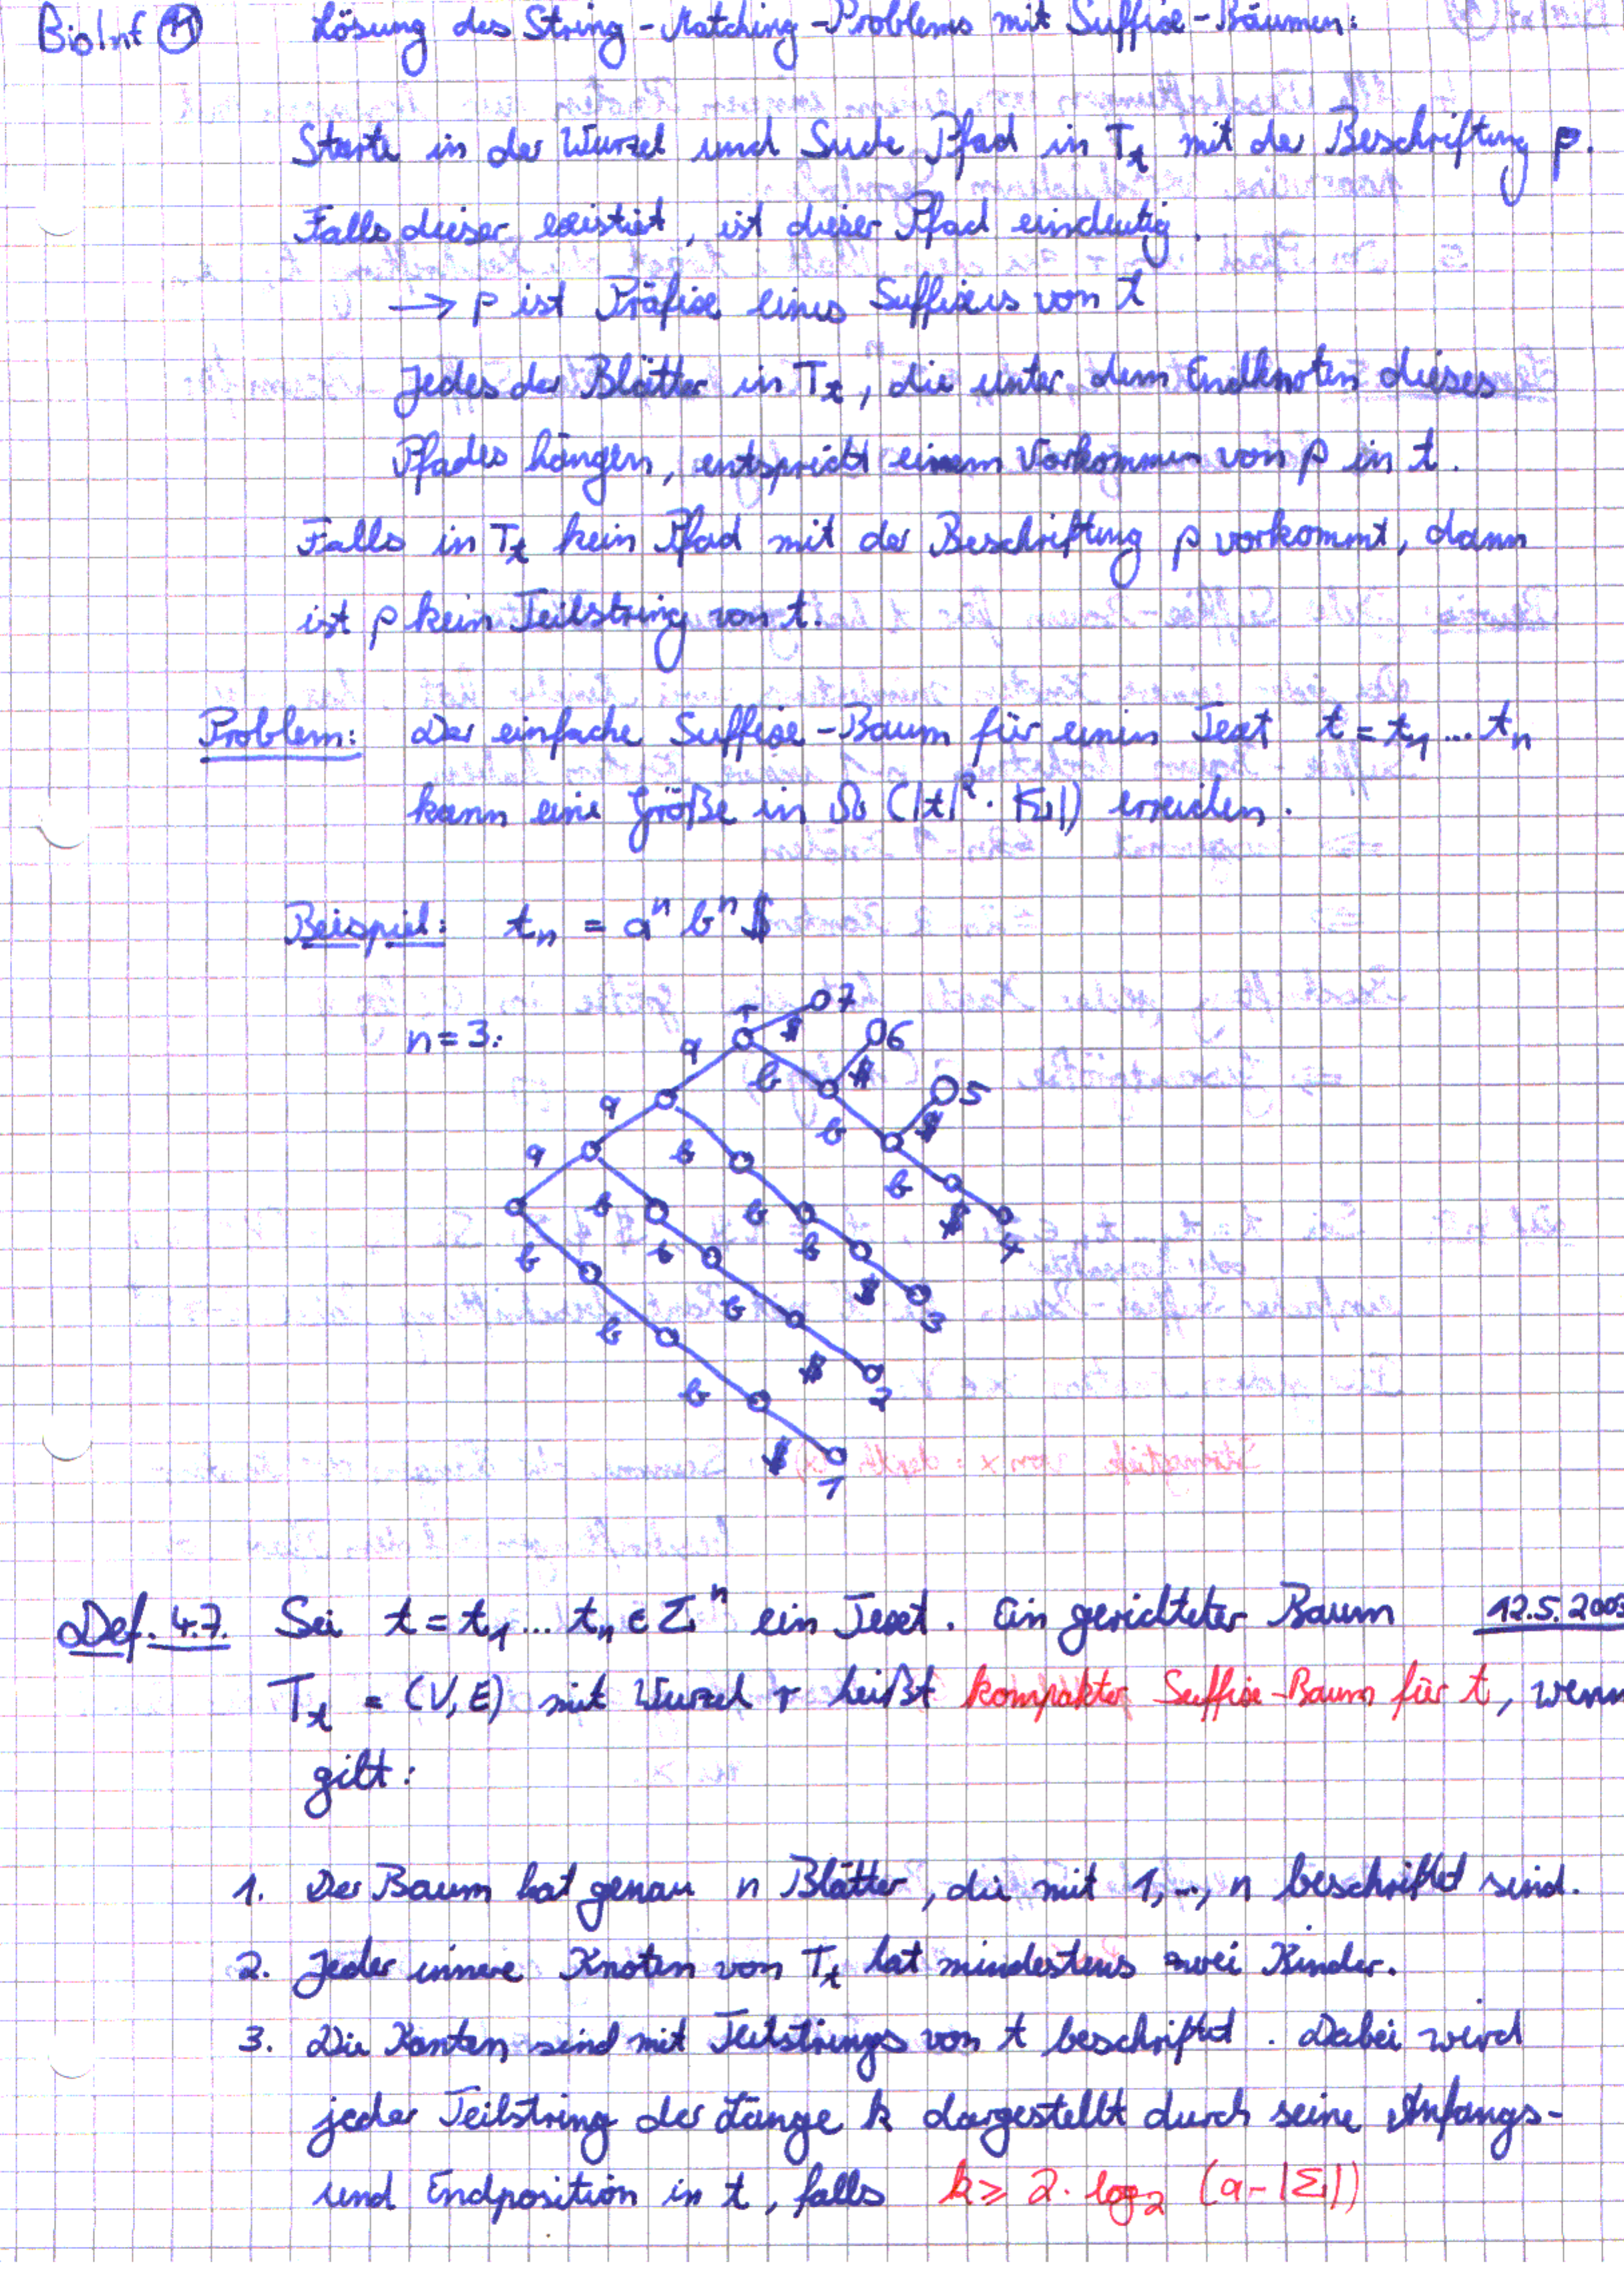 BioInf 11 Lösung des String-Matching-Problems mit Suffix-Bäumen:
Starte in der Wurzel und Suche Pfad in T_t mit der Beschriftung p.
Falls dieser existiert, ist dieser Pfad eindeutig.
→ p ist Präfix eines Suffixes von t
Jedes der Blätter in T_t, die unter dem Endknoten dieses
Pfades hängen, entspricht einem Vorkommen von p in t.
Falls in T_t kein Pfad mit der Beschriftung p vorkommt, dann
ist p kein Teilstring von t.
Problem: Der einfache Suffix-Baum für einen Text t = t_1 ... t_n
kann eine Größe in Ω (|t|² · |Σ|) erreichen.
Beispiel: t_n = a^n b^n $
n = 3:
r $ 7
a b $ 6
a b $ 5
a b b $ 4
b b b $ 3
b b b $ 2
b b b $ 1
Def. 4.7. Sei t = t_1 ... t_n ∈ Σ^n ein Text. Ein gerichteter Baum 12.5.2003
T_t = (V, E) mit Wurzel r heißt kompakter Suffix-Baum für t, wenn
gilt:
1. Der Baum hat genau n Blätter, die mit 1, ..., n beschriftet sind.
2. Jeder innere Knoten von T_t hat mindestens zwei Kinder.
3. Die Kanten sind mit Teilstrings von t beschriftet. Dabei wird
jeder Teilstring der Länge k dargestellt durch seine Anfangs-
und Endposition in t, falls k ≥ 2 · log_2 (a - |Σ|)